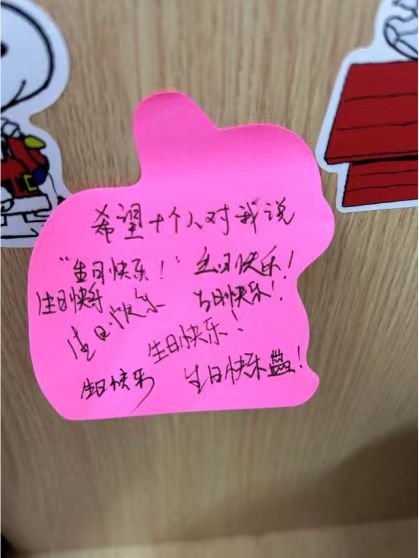 希望十个人对我说
"生日快乐！" 生日快乐！
生日快乐 生日快乐 生日快乐！
生日快乐 生日快乐！
生日快乐 生日快乐！